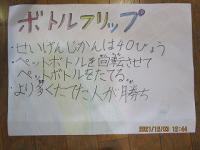 ボトルフリップ
・せいげんじかんは40びょう
・ペットボトルを回転させて
ペットボトルをたてる。
・より多くたてた人が勝ち
2021/12/03 12:44